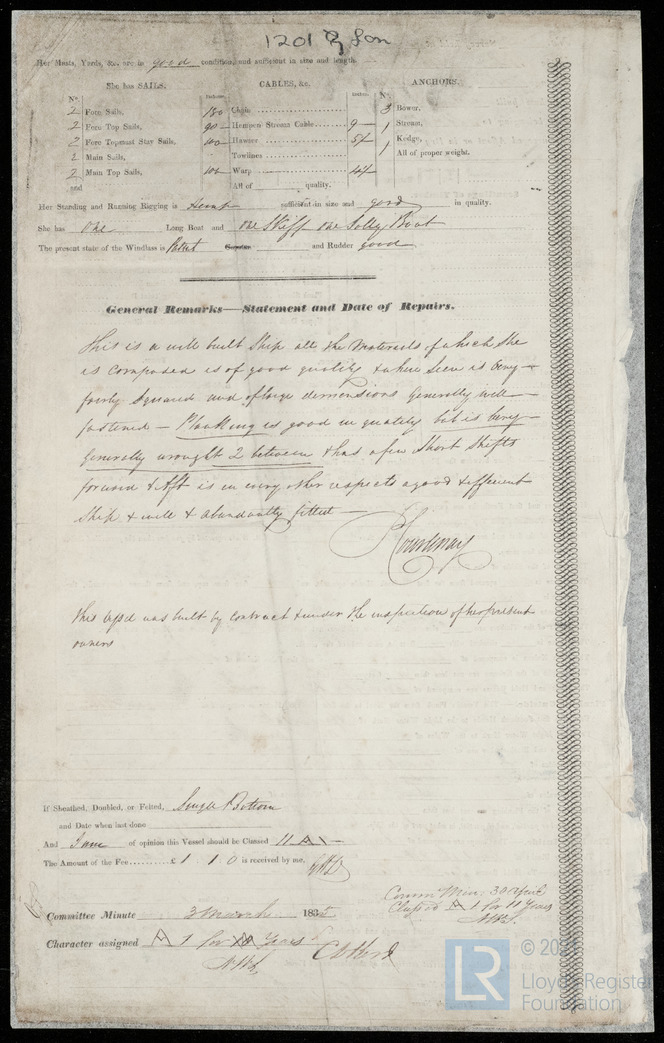 1201
Her Masts, Yards, &c. are in good condition, and sufficient in size and length.
She has SAILS.
CABLES, &c.
ANCHORS.
N°.
Fathoms.
Inches.
N°.
2 Fore Sails,
150
Chain
3 Bower,
2 Fore Top Sails,
90
Hempen Stream Cable
9
1 Stream,
2 Fore Topmast Stay Sails,
100
Hawser
1 Kedge,
2 Main Sails,
Towlines
All of proper weight.
2 Main Top Sails,
Warp
and
All of quality.
Her Standing and Running Rigging is hemp sufficient in size and good in quality.
She has One Long Boat and one Skiff one Jolly Boat
The present state of the Windlass is Patent Capstan and Rudder good
General Remarks—Statement and Date of Repairs.
This is a well built Ship all the Materials of which She
is composed is of good quality & when seen is very
fairly Squared and of large dimensions Generally well
fastened — Planking is good in quality but is very
generally wrought 2 between & has a few Short Shifts
forward & Aft is in every other respects a good & efficient
Ship & well & abundantly fitted
Courtenay
This Vessel was built by contract & under the inspection of her present
owners
If Sheathed, Doubled, or Felted, Single Bottom
and Date when last done
And I am of opinion this Vessel should be Classed 11 A 1
The Amount of the Fee £ 1 1 0 is received by me,
Committee Minute 3 March 1835
Character assigned A 1 for Years
Classed A 1 for 11 Years
LR
© 202
Lloyd's Register
Foundation